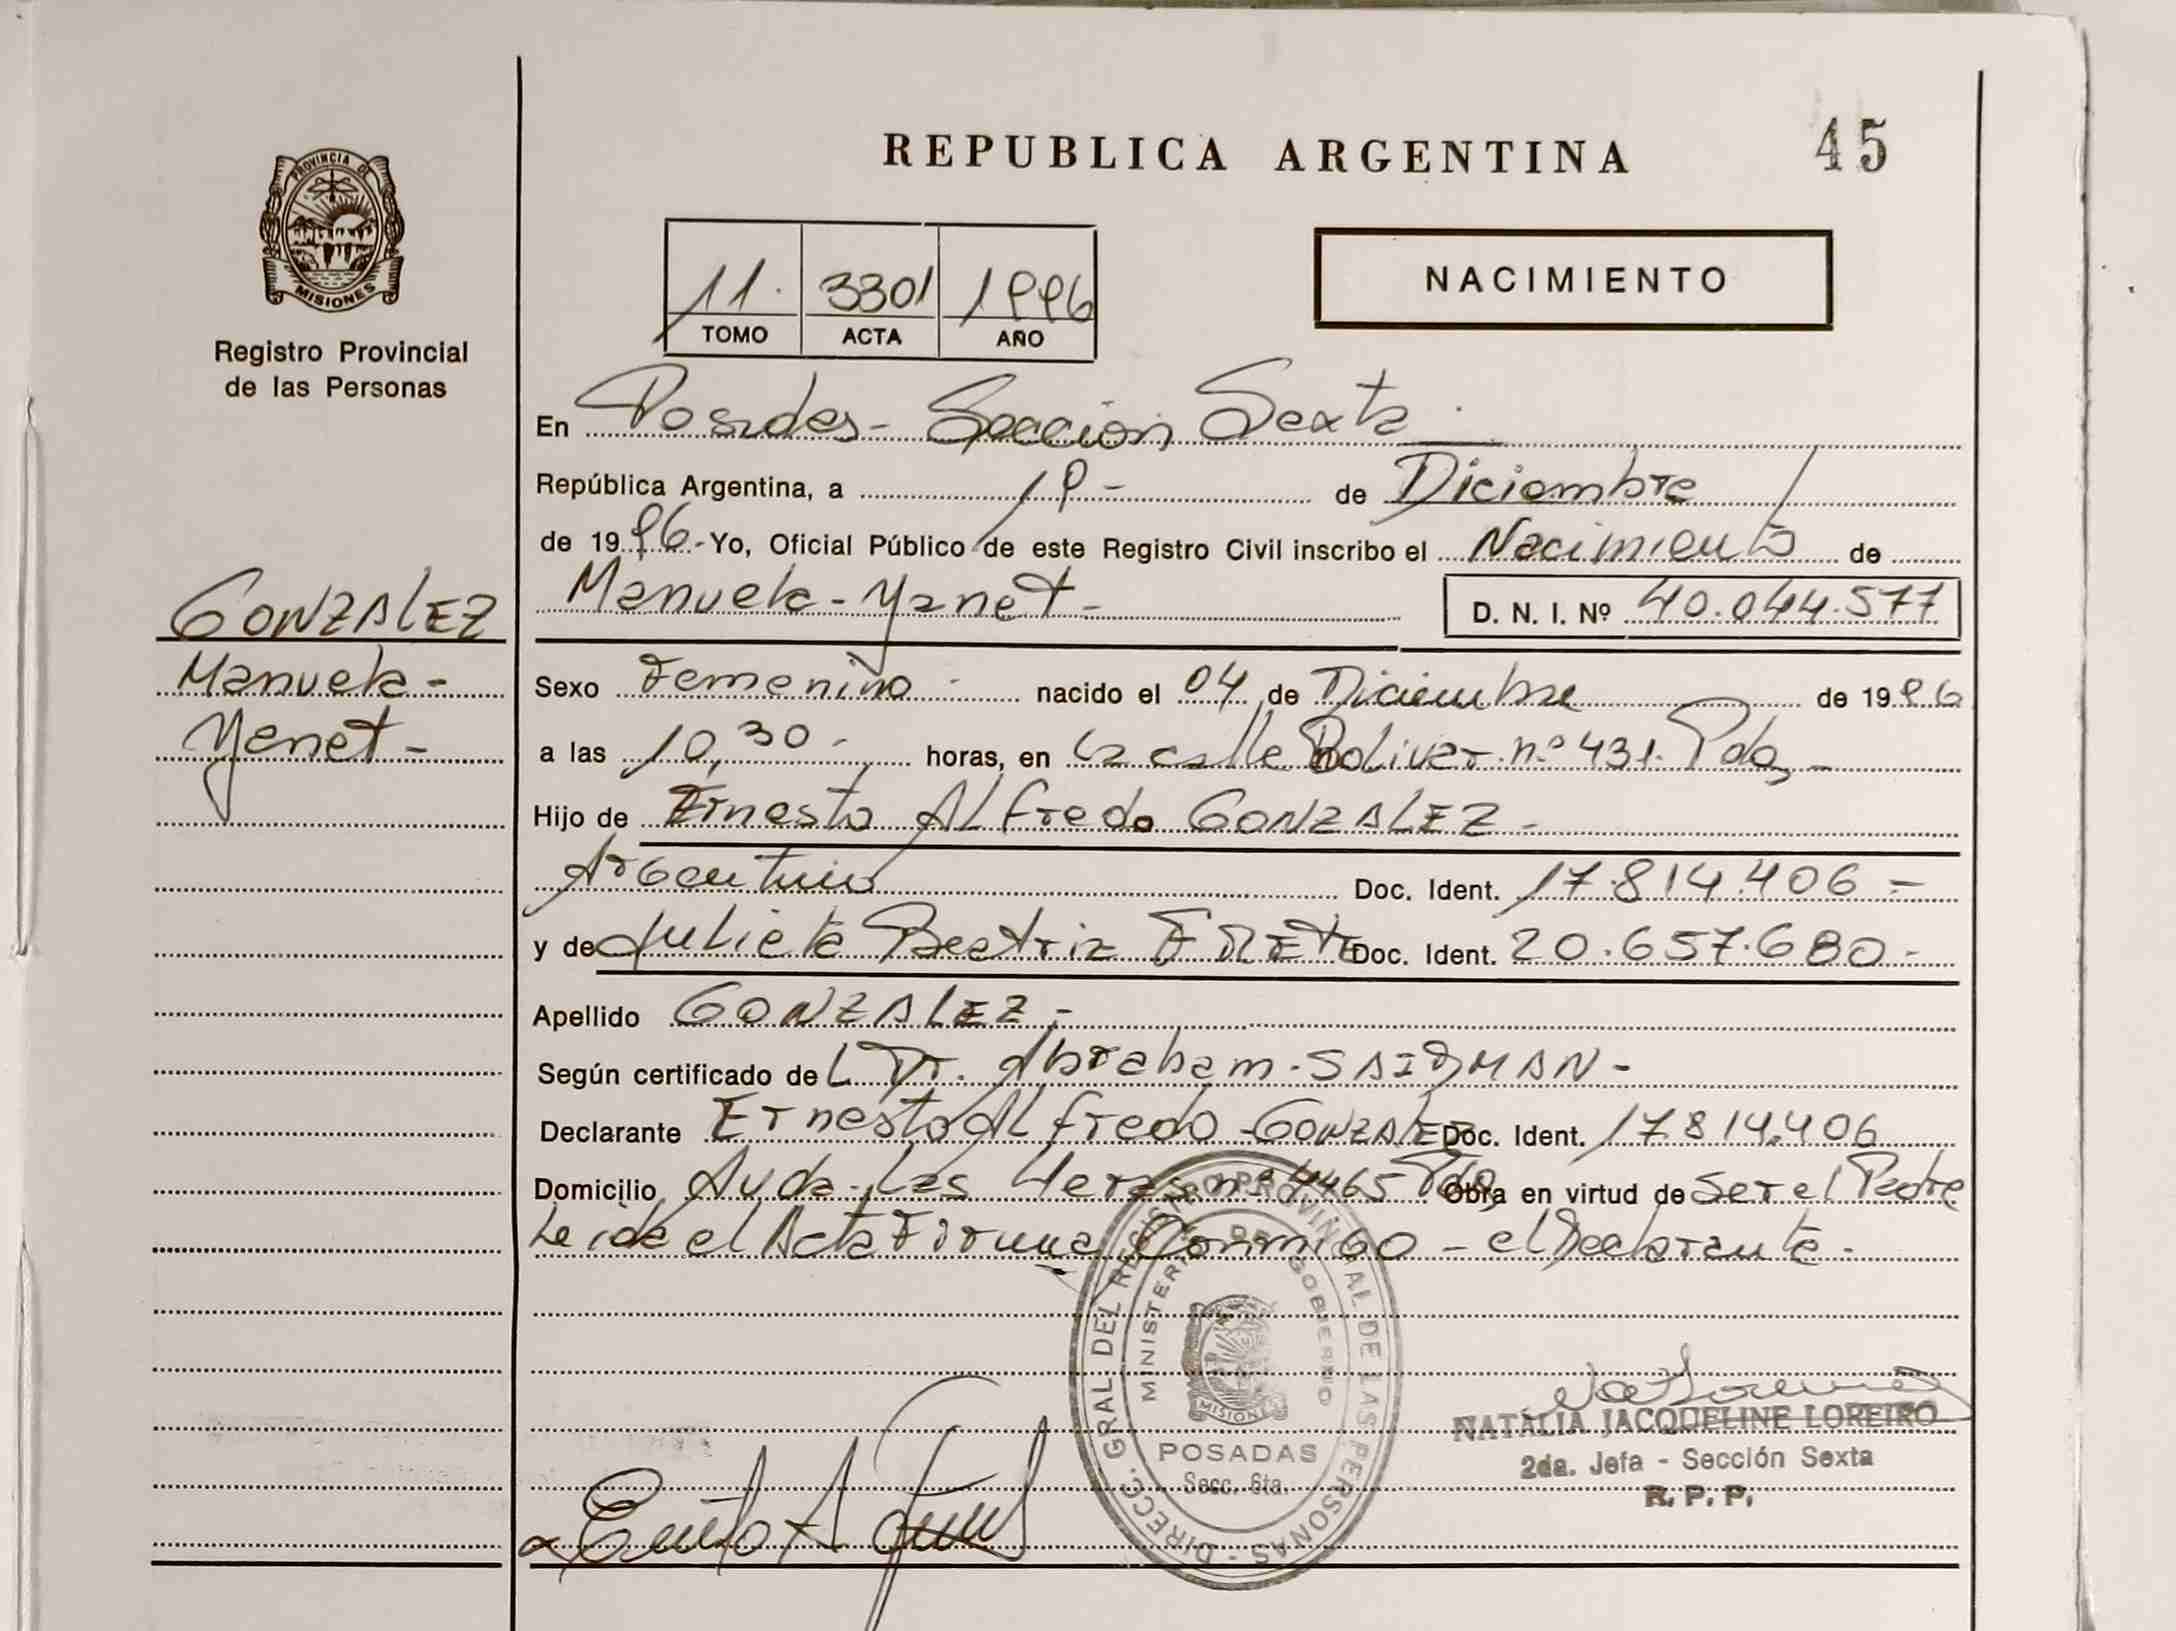 45
REPUBLICA ARGENTINA
PROVINCIA DE
MISIONES
Registro Provincial
de las Personas
11. 3301 1996
TOMO ACTA AÑO
NACIMIENTO
En Posadas - Seccion Sexta
República Argentina, a 19 - de Diciembre
de 1996.- Yo, Oficial Público de este Registro Civil inscribo el Nacimiento de
Manuela - Yanet - D. N. I. Nº 40.044.577
GONZALEZ
Manuela -
Yanet -
Sexo Femenino - nacido el 04 de Diciembre de 1996
a las 10,30 - horas, en la calle Bolivar nº 431. Pdas -
Hijo de Ernesto Alfredo GONZALEZ -
Argentino Doc. Ident. 17.814.406 -
y de Julieta Beatriz Doc. Ident. 20.657.680 -
Apellido GONZALEZ -
Según certificado del Dr. Abraham SAIDMAN -
Declarante Ernesto Alfredo GONZALEZ Doc. Ident. 17814.406
Domicilio Avda. Las Heras nº 4465 Pdas Obra en virtud de ser el Padre
Leida el Acta Firma Conmigo - el Declarante -
DIRECC. GRAL DEL REGISTRO PROVINCIAL DE LAS PERSONAS -
MINISTERIO DE GOBIERNO
MISIONES
POSADAS
Secc. 6ta.
NATALIA JACQUELINE LOREIRO
2da. Jefa - Sección Sexta
R. P. P.